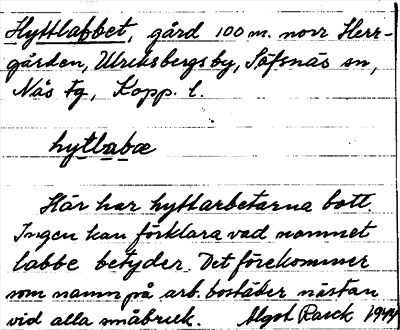 Hyttlabbet, gård 100 m. norr Herr-
gården, Ulriksbergsby, Säfsnäs sn,
Näs Fg, Kopp. l.
hytlabæ
Här har hyttarbetarna bott.
Ingen kan förklara vad namnet
labbe betyder. Det förekommer
som namn på arb. bostäder nästan
vid alla småbruk. Algot 1944